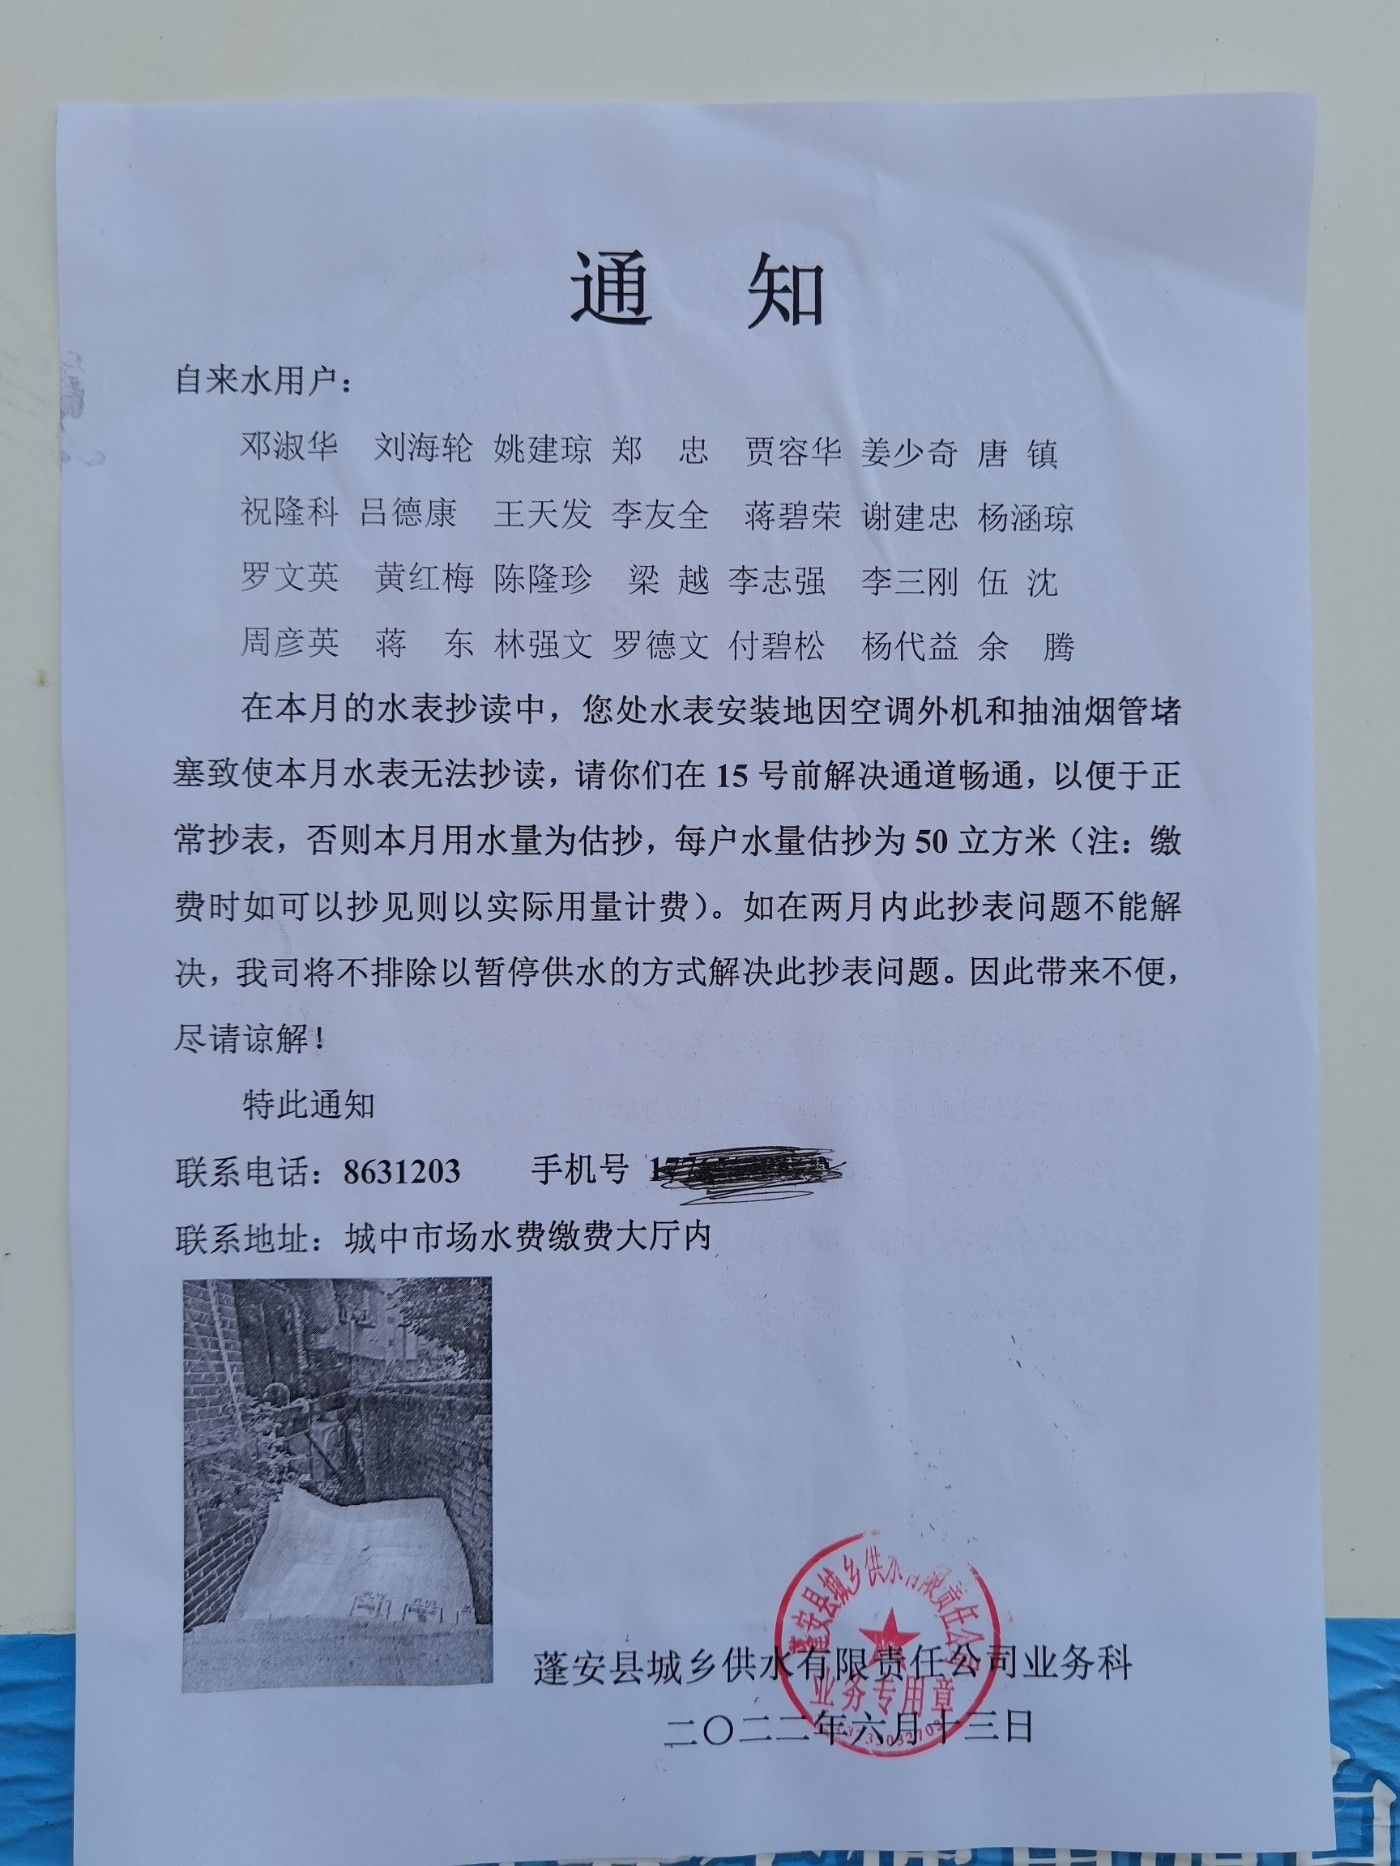 通 知
自来水用户：
邓淑华 刘海轮 姚建琼 郑 忠 贾容华 姜少奇 唐 镇
祝隆科 吕德康 王天发 李友全 蒋碧荣 谢建忠 杨涵琼
罗文英 黄红梅 陈隆珍 梁 越 李志强 李三刚 伍 沈
周彦英 蒋 东 林强文 罗德文 付碧松 杨代益 余 腾
在本月的水表抄读中，您处水表安装地因空调外机和抽油烟管堵
塞致使本月水表无法抄读，请你们在 15 号前解决通道畅通，以便于正
常抄表，否则本月用水量为估抄，每户水量估抄为 50 立方米（注：缴
费时如可以抄见则以实际用量计费）。如在两月内此抄表问题不能解
决，我司将不排除以暂停供水的方式解决此抄表问题。因此带来不便，
尽请谅解！
特此通知
联系电话：8631203 手机号 177
联系地址：城中市场水费缴费大厅内
蓬安县城乡供水有限责任公司
业务专用章
蓬安县城乡供水有限责任公司业务科
二〇二二年六月十三日